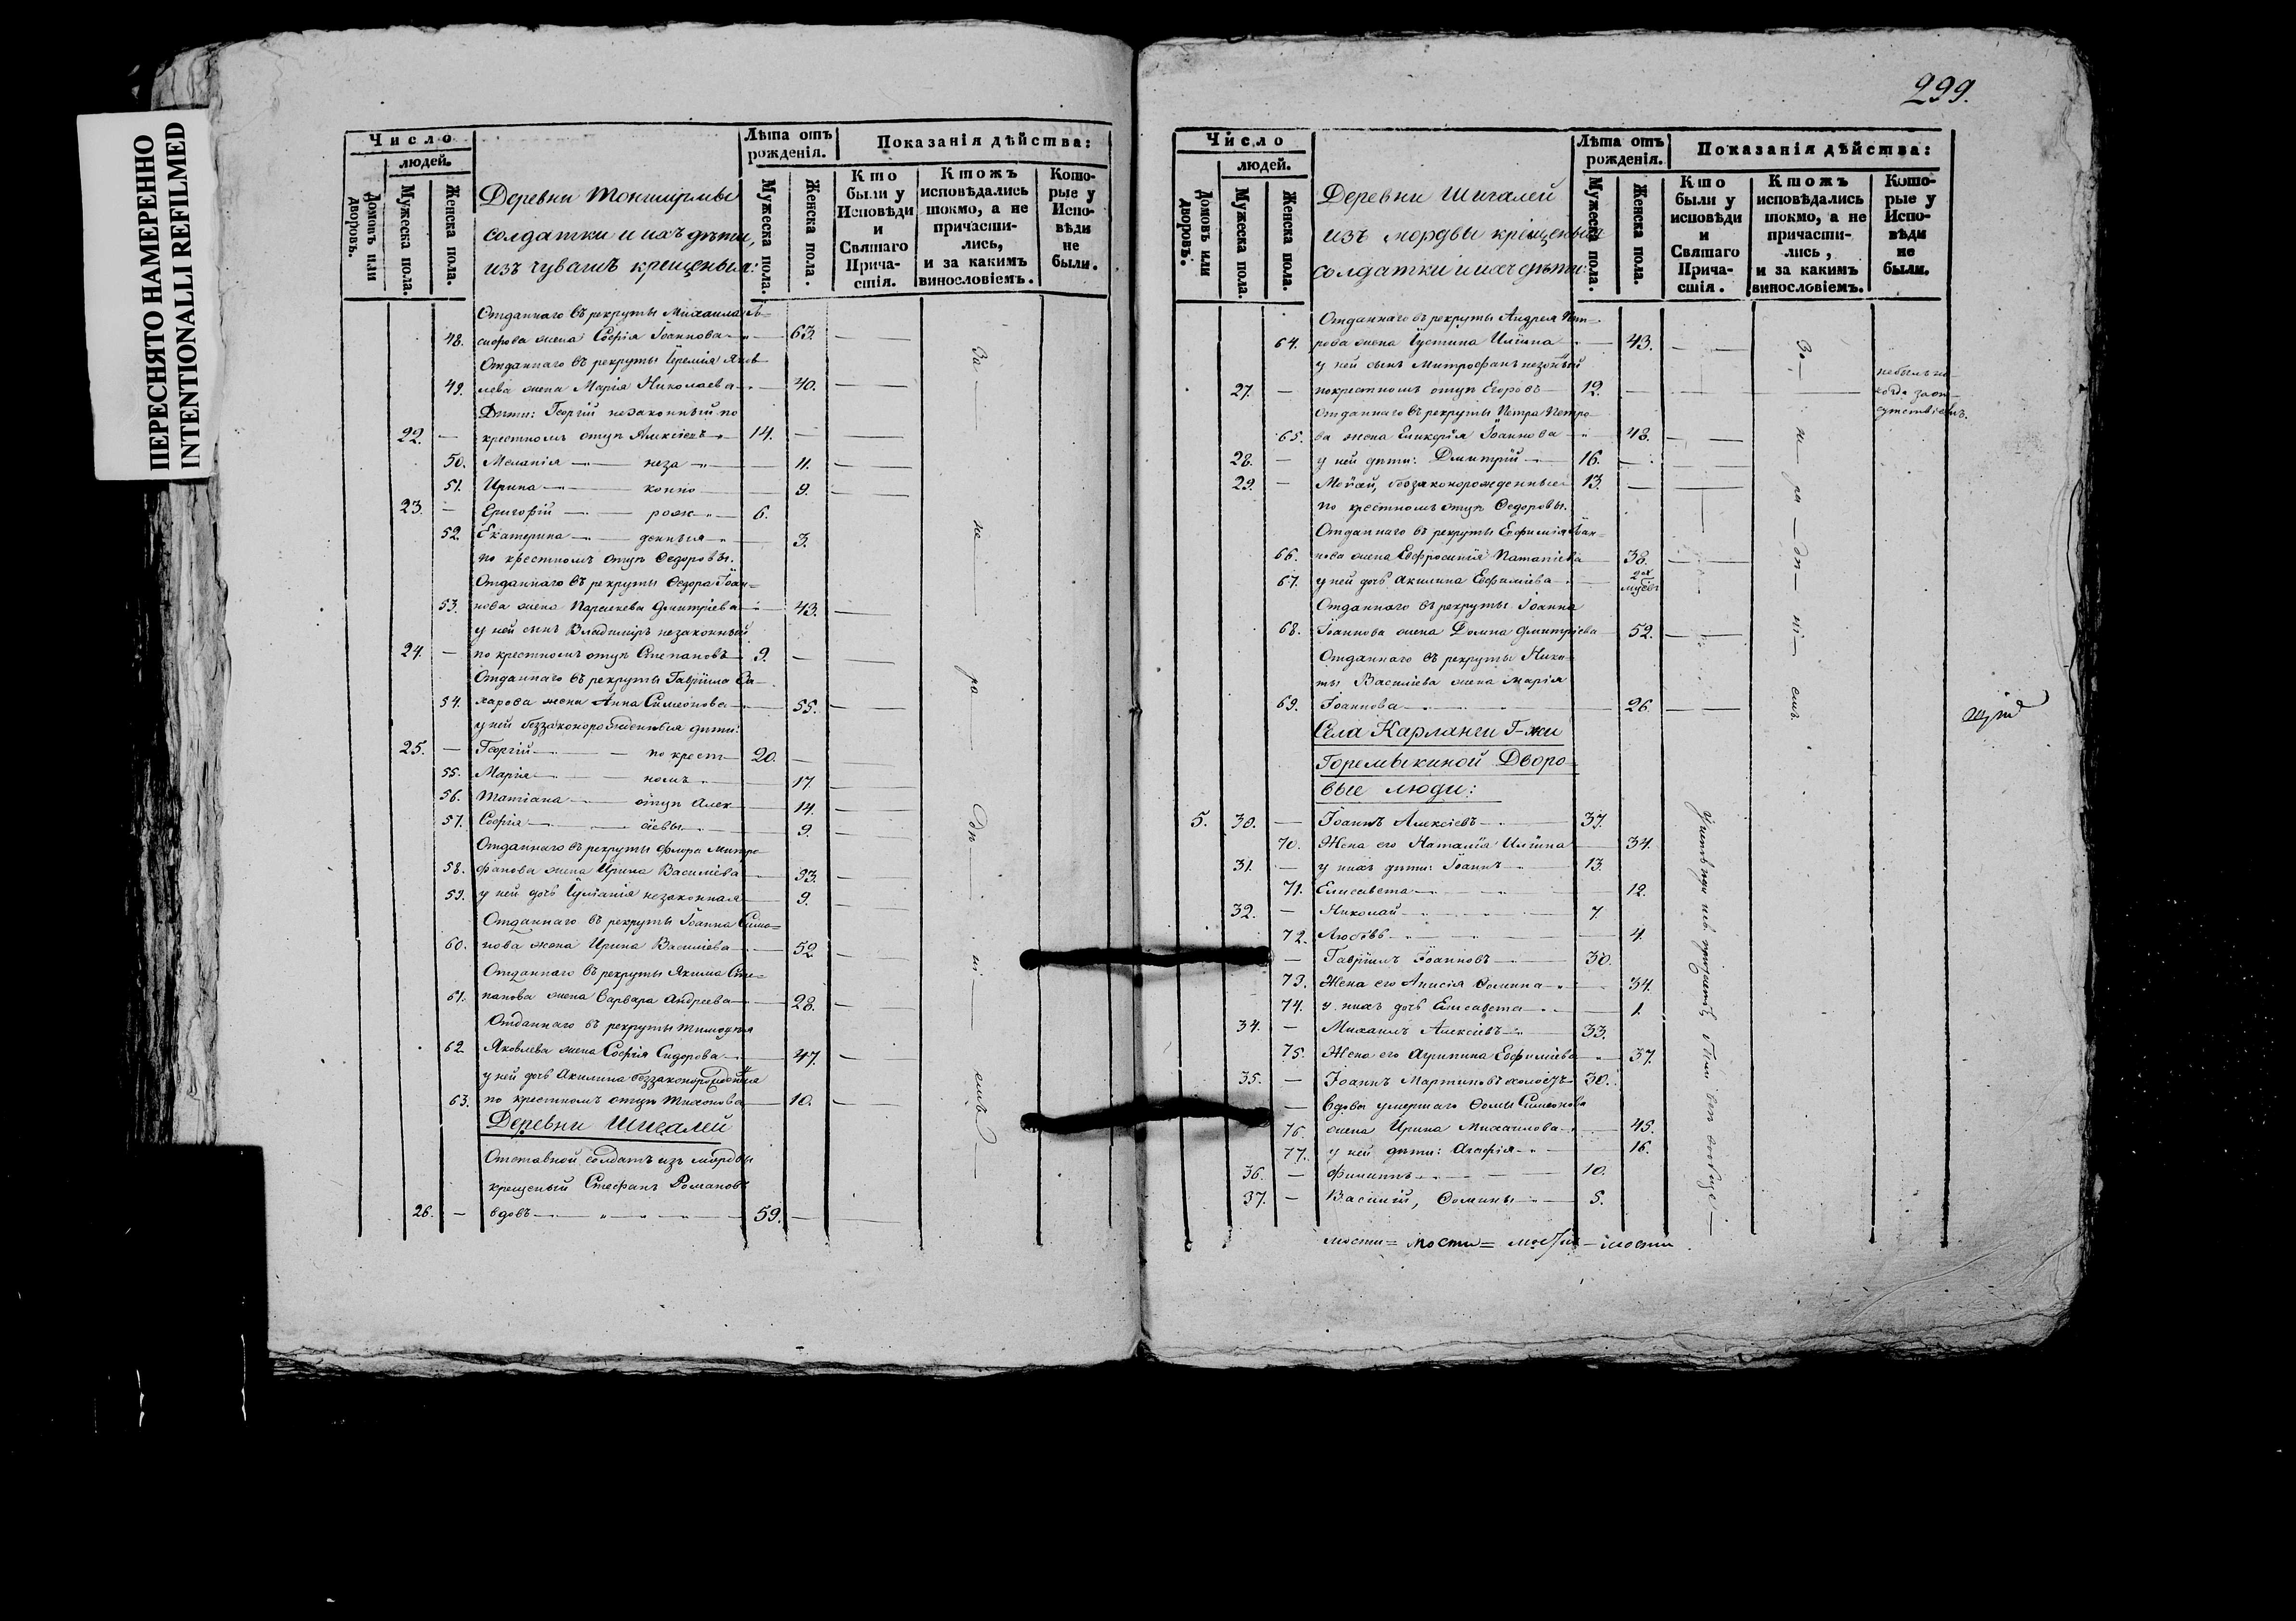 ПЕРЕСНЯТО НАМЕРЕННО
INTENTIONALLI REFILMED
Число
людей.
Домовъ или дворовъ.
Мужеска пола.
Женска пола.
Деревни
солдатки и ихъ дѣти,
изъ чувашъ крещеныя:
Лѣта отъ рожденія.
Мужеска пола.
Женска пола.
Показанія дѣйства:
Кто были у Исповѣди и Святаго Прича-стія.
Ктожъ исповѣдались токмо, а не причасти-лись, и за какимъ винословіемъ.
Кото-рые у Испо-вѣди не были.
Отданнаго въ рекруты Михаила
48. жена Софія Іоаннова 63.
Отданнаго въ рекруты Іеремія Яков
49. лева жена Марія Николаева 40.
Дѣти: Георгій незаконный по
22. — крестномъ отцѣ Алексіевъ 14.
50. Меланія — неза — 11.
51. Ирина — конно 9.
23. — Григорій — рож — 6.
52. Екатерина — денныя 3.
по крестномъ отцѣ Ѳедоровы.
Отданнаго въ рекруты Ѳедора Іоан=
53. нова жена Параскева Дмитріева 43.
у ней сынъ Владиміръ незаконный
24. — по крестномъ отцѣ Степановъ 9.
Отданнаго въ рекруты Гавріила За-
54. харова жена Анна Симеонова 55.
у ней беззаконорожденныя дѣти:
25. — Георгій — по крест 20.
55. Марія — номъ 17.
56. Татіана — отцѣ Алек 14.
57. Софія — сіевы 9.
Отданнаго въ рекруты Флора Митро
58. фанова жена Ирина Василіева 33.
59. у ней дочь Іуліанія незаконная 9.
Отданнаго въ рекруты Іоанна Симо=
60. нова жена Ирина Василіева 52.
Отданнаго въ рекруты Якима Сте=
61. панова жена Варвара Андреева 28.
Отданнаго въ рекруты Тимоѳея
62. Яковлева жена Софія Сидорова 47.
у ней дочь Акилина беззаконорожденная
63. по крестномъ отцѣ Тихонова 10.
Деревни Шигалей
Отставной солдатъ изъ мордвы
крещеный Стефанъ Романовъ
26. — вдовъ 59.
За — не — ра — дѣ — ні — емъ
299.
Число
людей.
Домовъ или дворовъ.
Мужеска пола.
Женска пола.
Деревни Шигалей
изъ мордвы крещеныя
солдатки и ихъ дѣти:
Лѣта отъ рожденія.
Мужеска пола.
Женска пола.
Показанія дѣйства:
Кто были у исповѣди и Святаго Прича-стія.
Ктожъ исповѣдались токмо, а не причасти-лись, и за какимъ винословіемъ.
Кото-рые у Испо-вѣди не были.
Отданнаго въ рекруты Андрея Пет=
64. рова жена Іустина Иліина 43.
у ней сынъ Митрофанъ незонный
27. — по крестномъ отцѣ Егоровъ 12.
Отданнаго въ рекруты Петра Петро
65. ва жена Гликерія Іоаннова 48.
28. — у ней дѣти: Дмитрій 16.
29. — Мойсй, беззаконорожденные 13.
по крестномъ отцѣ Ѳедоровы.
Отданнаго въ рекруты Евфимія Иван=
66. нова жена Евфросинія 38.
67. у ней дочь Акилина Евфиміева 2хъ мѣсяц
Отданнаго въ рекруты Іоанна
68. Іоаннова жена Домна Дмитріева 52.
Отданнаго въ рекруты Ники
ты Василіева жена Марія
69. Іоаннова 26.
Села Карланги Г-жи
Горемыкиной Дворо=
вые люди:
5. 30. — Іоаннъ Алексіевъ 37.
70. Жена его Наталія Иліина 34.
31. — у нихъ дѣти: Іоаннъ 13.
71. Елисавета 12.
32. — Николай 7.
72. Любовь 4.
— Гавріилъ Іоанновъ 30.
73. Жена его Анисія Ѳомина 34.
74. у нихъ дочь Елисавета 1.
34. — Михаилъ Алексіевъ 33.
75. Жена его Агрипина Евфиміева 37.
35. — Іоаннъ Мартиновъ холостъ 30.
— вдова умершаго Ѳомы Симеонова
76. жена Ирина Михаилова 45.
77. у ней дѣти: Агафія 16.
36. — Филиппъ 10.
37. — Василій, Ѳомины 5.
За — не — ра — дѣ — ні — емъ.
мости = мости = мости — мости